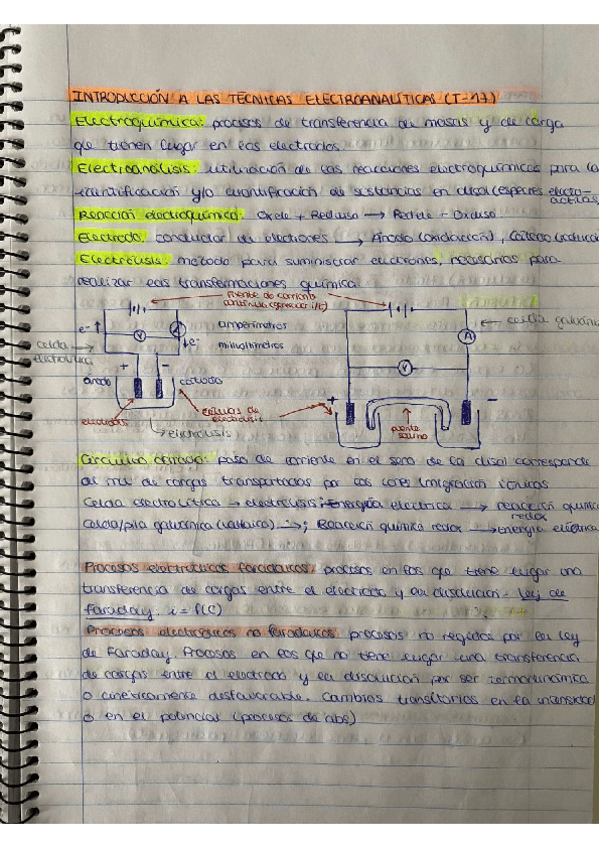 INTRODUCCIÓN A LAS TÉCNICAS ELECTROANALÍTICAS (T-17)
Electroquímica: procesos de transferencia de masas y de carga
que tienen lugar en los electrodos.
Electroanálisis: utilización de las reacciones electroquímicas para la
identificación y/o cuantificación de sustancias en disol (especies electro-
activas
Reacción electroquímica: Oxide + Reduso → Redide + Oxduso
Electrodo: conductor de electrones → Ánodo (oxidación), Cátodo (reducción
Electrólisis: método para suministrar electrones, necesarios para
realizar las transformaciones química.
fuente de corriente
continua
e-
V
e-
amperímetros
milivoltímetros
A
celda galvánica
celda
electrolítica
ánodo
+
-
cátodo
V
electrodos
células de
electrólisis
electrólisis
+
puente
salino
-
Circuito cerrado: paso de corriente en el seno de la disol corresponde
al de cargas transportadas por los iones (migración iónica)
Celda electrolítica → electrólisis; Energía eléctrica → reacción química
redox
Celda/pila galvánica (voltaica) → ; Reacción química redox → Energía eléctrica
Procesos electródicos faradaicos: procesos en los que tiene lugar una
transferencia de cargas entre el electrodo y la disolución - Ley de
Faraday. i = f(C)
Procesos electródicos no faradaicos: procesos no regidos por la ley
de Faraday. Procesos en los que no tiene lugar una transferencia
de cargas entre el electrodo y la disolución por ser termodinámica
o cinéticamente desfavorable. Cambios transitorios en la intensidad
o en el potencial (procesos de abs)